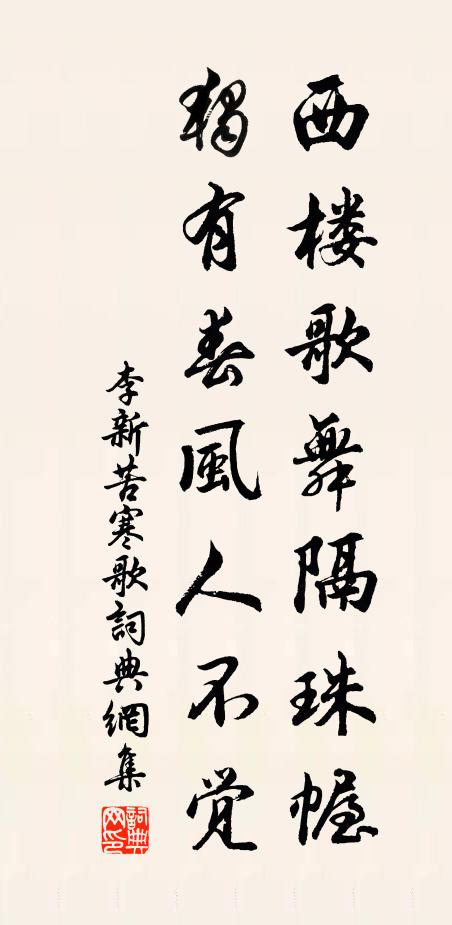 西楼歌舞隔珠幄
独有春風人不覚
李新苦寒歌詞典網集
詞典網印